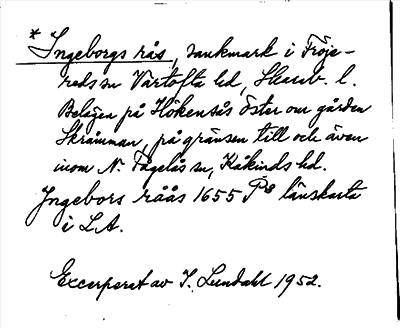 * Ingeborgs rås, sankmark i Fröje-
reds sn Vartofta hd, Skarab. l.
Belägen på Hökensås öster om gården
Skrämman, på gränsen till och även
inom N. Fågelås sn, Kåkinds hd.
Ingeborsråås 1655 P8 länskarta
i L.A.
Excerperat av I. Lundahl 1952.